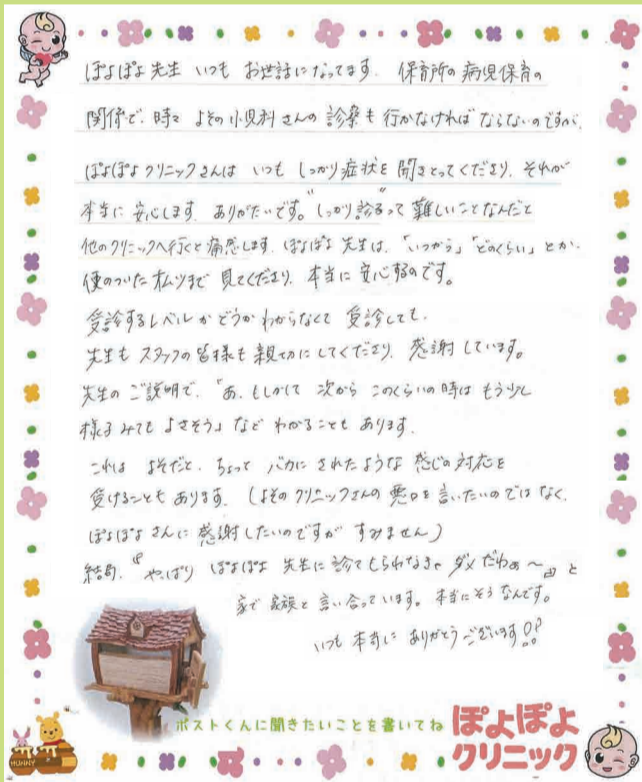 ぽよぽよ先生 いつも お世話になってます. 保育所の病児保育の
関係で、時々 よその小児科さんの 診察も 行かなければ ならないのですが、
ぽよぽよクリニックさんは いつも しっかり症状を 聞きとってくださり、それが
本当に 安心します. ありがたいです。"しっかり診る"って 難しいことなんだと
他のクリニックへ行くと痛感します. ぽよぽよ 先生は、「いつから」「どのくらい」とか、
便のついたオムツまで 見てくださり、本当に 安心するのです。
受診するレベルか どうか わからなくて 受診しても、
先生も スタッフの 皆様も 親切にしてくださり、感謝しています。
先生の ご説明で、「あ、もしかして 次から このくらいの時は もう少し
様子みても よさそう」など わかることも あります.
これは よそだと、ちょっと バカに されたような 感じの対応を
受けることも あります. (よその クリニックさんの 悪口を 言いたいのでは なく、
ぽよぽよ さんに 感謝したいのですが すみません)
結局、『やっぱり ぽよぽよ 先生に 診てもらわなきゃ ダメ だわぁ〜』と
家で 家族と 言い合っています。本当に そう なんです。
いつも 本当に ありがとうございます!!
ポストくんに聞きたいことを書いてね
ぽよぽよ
クリニック
HUNNY